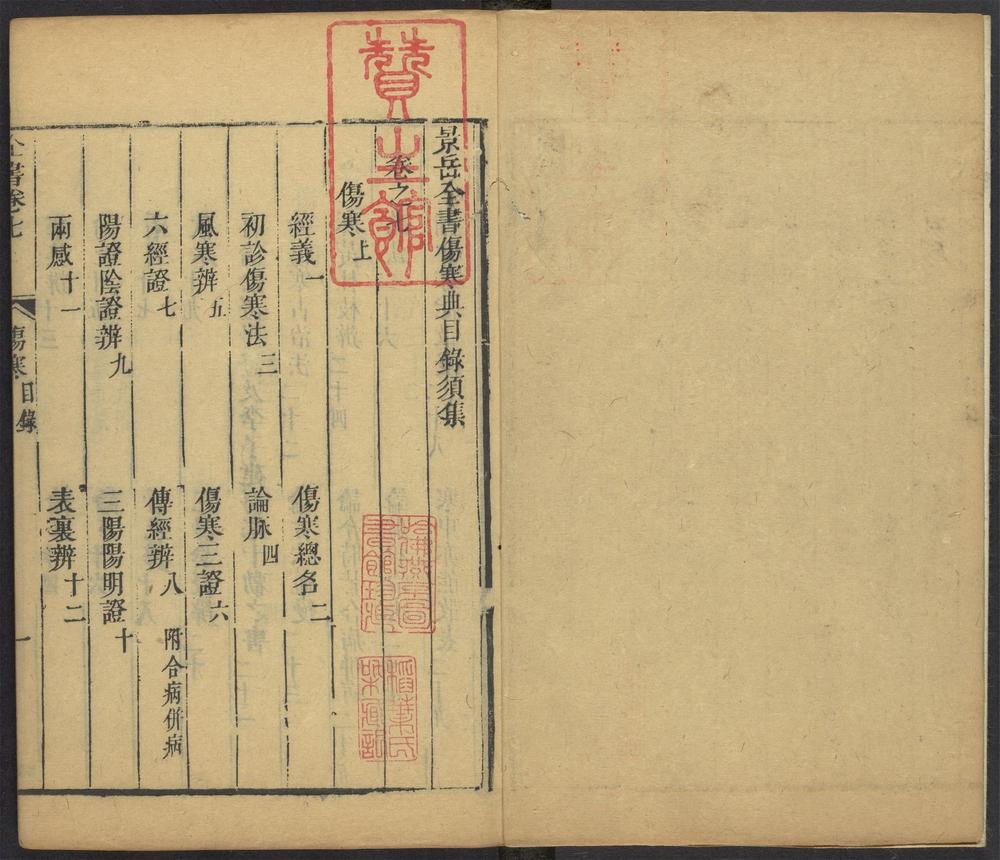 景岳全書傷寒典目錄須集
卷之七
傷寒上
經義一
傷寒總名二
初診傷寒法三
論脉四
風寒辨五
傷寒三證六
六經證七
傳經辨八 附合病併病
陽證陰證辨九
三陽陽明證十
兩感十一
表裏辨十二
全書卷之七
傷寒目錄
一
贊生館
哈佛燕京圖書館珍藏